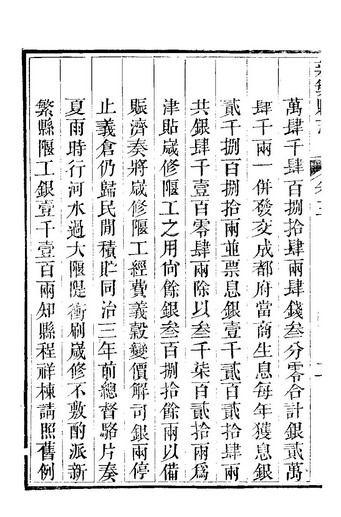 萬肆千肆百捌拾肆兩肆錢叁分零合計銀貳萬
肆千兩一併發交成都府當商生息每年獲息銀
貳千捌百捌拾兩並票息銀壹千貳百貳拾肆兩
共銀肆千壹百零肆兩除以叁千柒百貳拾兩爲
津貼歲修堰工之用尙餘銀叁百捌拾餘兩以備
賑濟奏將歲修堰工經費義穀變價解司銀兩停
止義倉仍歸民間積貯同治三年前總督駱片奏
夏雨時行河水過大堰隄衝刷歲修不敷酌派新
繁縣堰工銀壹千壹百兩知縣程祥棟請照舊例